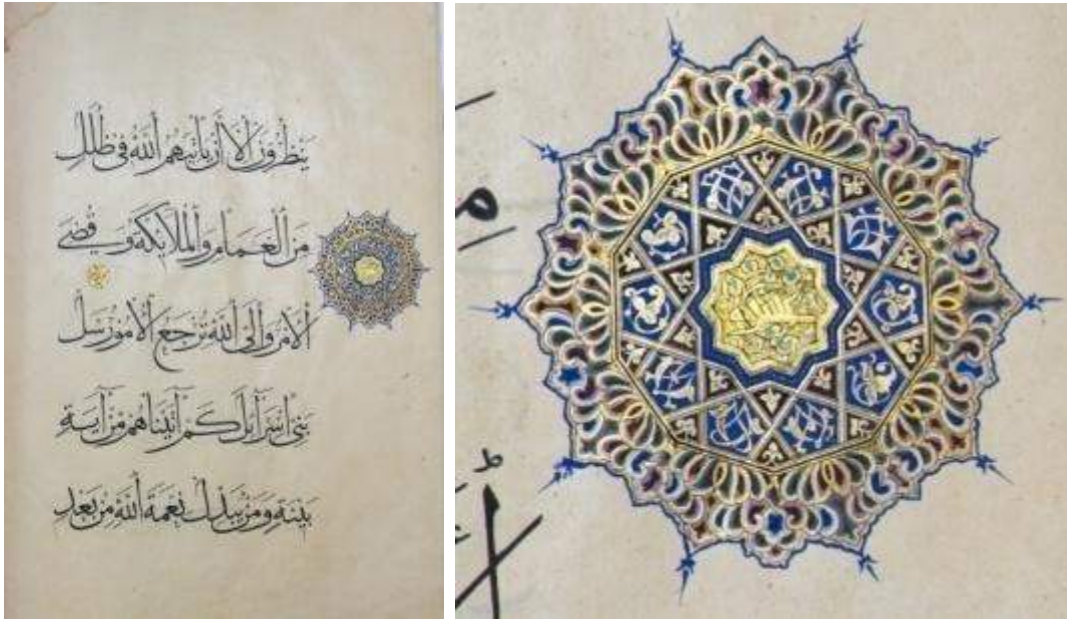 يَنظُرُونَ إِلَّا أَن يَأْتِيَهُمُ ٱللَّهُ فِى ظُلَلٍ
مِنَ ٱلْغَمَامِ وَٱلْمَلَائِكَةُ وَقُضِىَ
ٱلْأَمْرُ وَإِلَى ٱللَّهِ تُرْجَعُ ٱلْأُمُورُ سَلْ
بَنِى إِسْرَآئِيلَ كَمْ آتَيْنَاهُمْ مِنْ آيَةٍ
بَيِّنَةٍ وَمَنْ يُبَدِّلْ نِعْمَةَ ٱللَّهِ مِنْ بَعْدِ